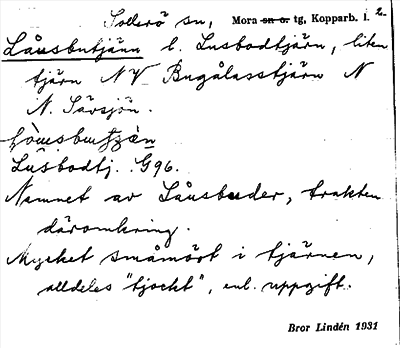 Sollerö sn, Mora sn o. tg, Kopparb. l. 2.
Låusbutjänn l. Lusbodtjärn, liten
tjärn NV Bugålasstjärn N
N. Särsjön.
Lusbodtj. G96.
Namnet av Låusbuder, trakten
däromkring.
Mycket småmört i tjärnen,
alldeles "tjockt", enl. uppgift.
Bror Lindén 1931